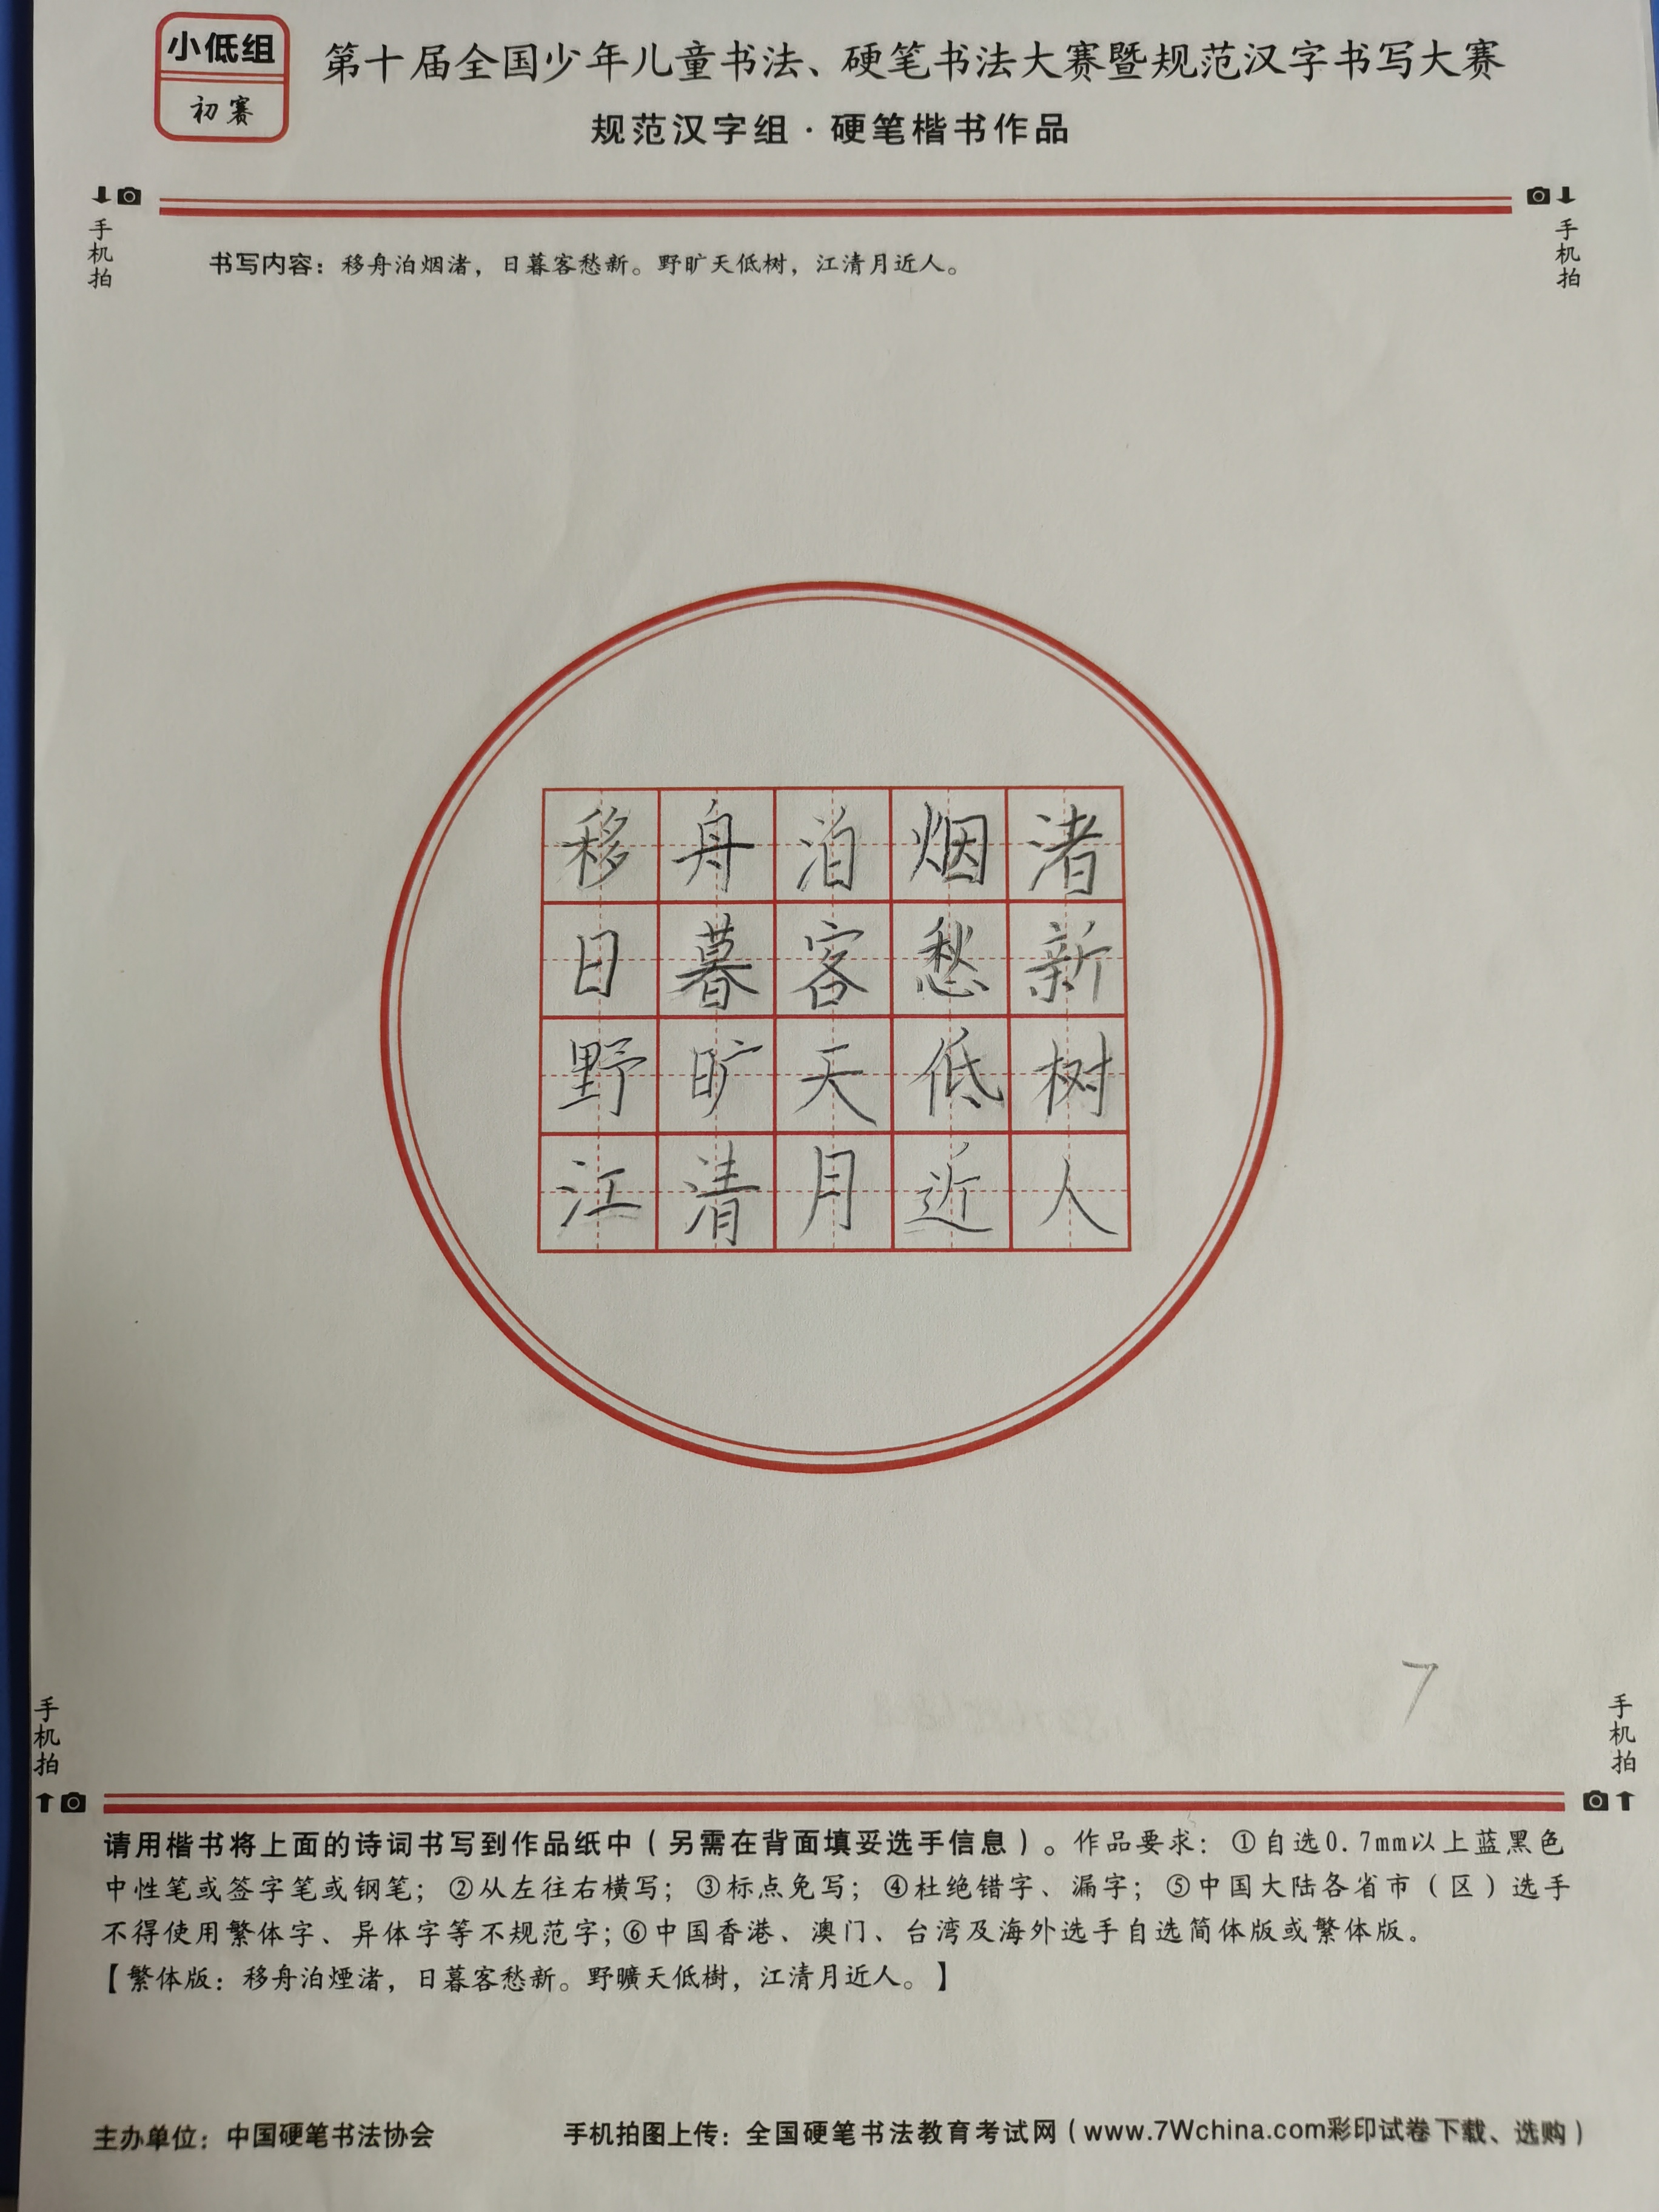 小低组
初赛
第十届全国少年儿童书法、硬笔书法大赛暨规范汉字书写大赛
规范汉字组·硬笔楷书作品
手机拍
手机拍
书写内容：移舟泊烟渚，日暮客愁新。野旷天低树，江清月近人。
移舟泊烟渚
日暮客愁新
野旷天低树
江清月近人
7
手机拍
手机拍
请用楷书将上面的诗词书写到作品纸中（另需在背面填妥选手信息）。作品要求：①自选0.7mm以上蓝黑色
中性笔或签字笔或钢笔；②从左往右横写；③标点免写；④杜绝错字、漏字；⑤中国大陆各省市（区）选手
不得使用繁体字、异体字等不规范字；⑥中国香港、澳门、台湾及海外选手自选简体版或繁体版。
【繁体版：移舟泊煙渚，日暮客愁新。野曠天低樹，江清月近人。】
主办单位：中国硬笔书法协会
手机拍图上传：全国硬笔书法教育考试网（www.7Wchina.com彩印试卷下载、选购）